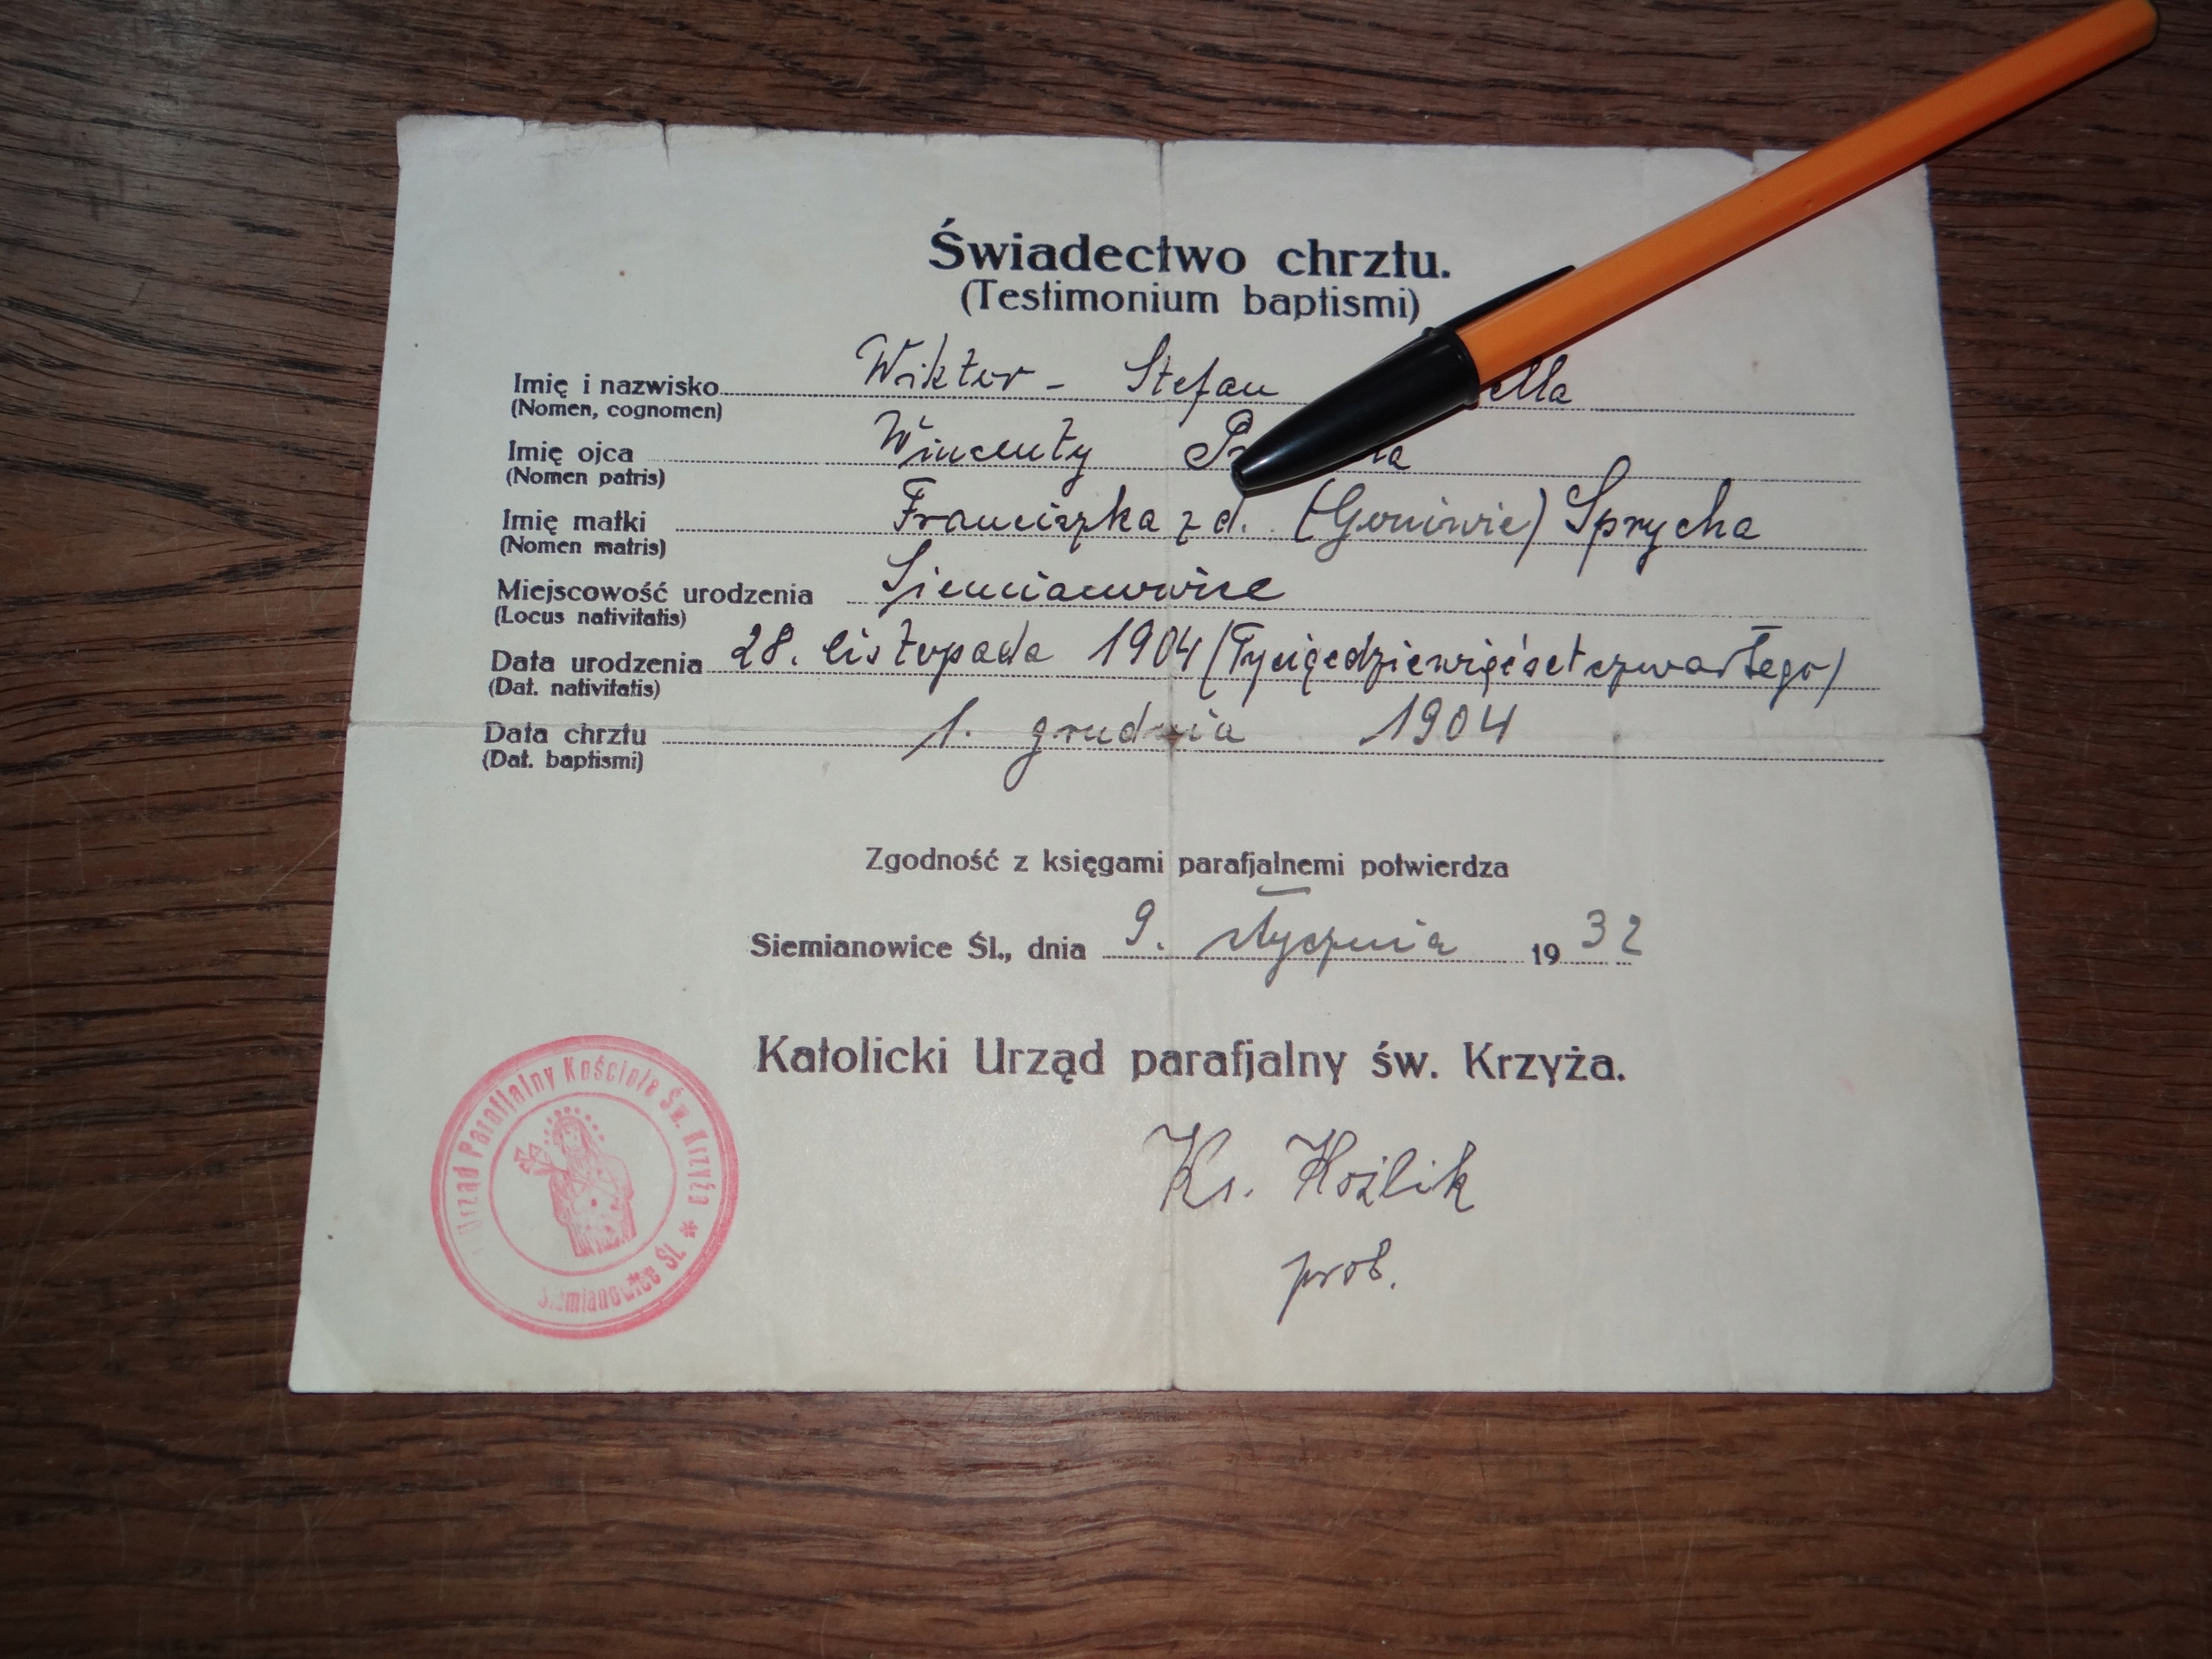 Świadectwo chrztu.
(Testimonium baptismi)
Imię i nazwisko Wiktor - Stefan
(Nomen, cognomen)
Imię ojca Wincenty
(Nomen patris)
Imię matki Franciszka z d. (Goniwie) Sprycha
(Nomen matris)
Miejscowość urodzenia Siemianowice
(Locus nativitatis)
Data urodzenia 28. listopada 1904 (Tysiącdziewięćsetczwartego)
(Dat. nativitatis)
Data chrztu 1. grudnia 1904
(Dat. baptismi)
Zgodność z księgami parafjalnemi potwierdza
Siemianowice Śl., dnia 9. stycznia 1932
Katolicki Urząd parafjalny św. Krzyża.
Ks. Koźlik
prob.
Urząd Parafjalny Kościoła Św. Krzyża * Siemianowice Śl.